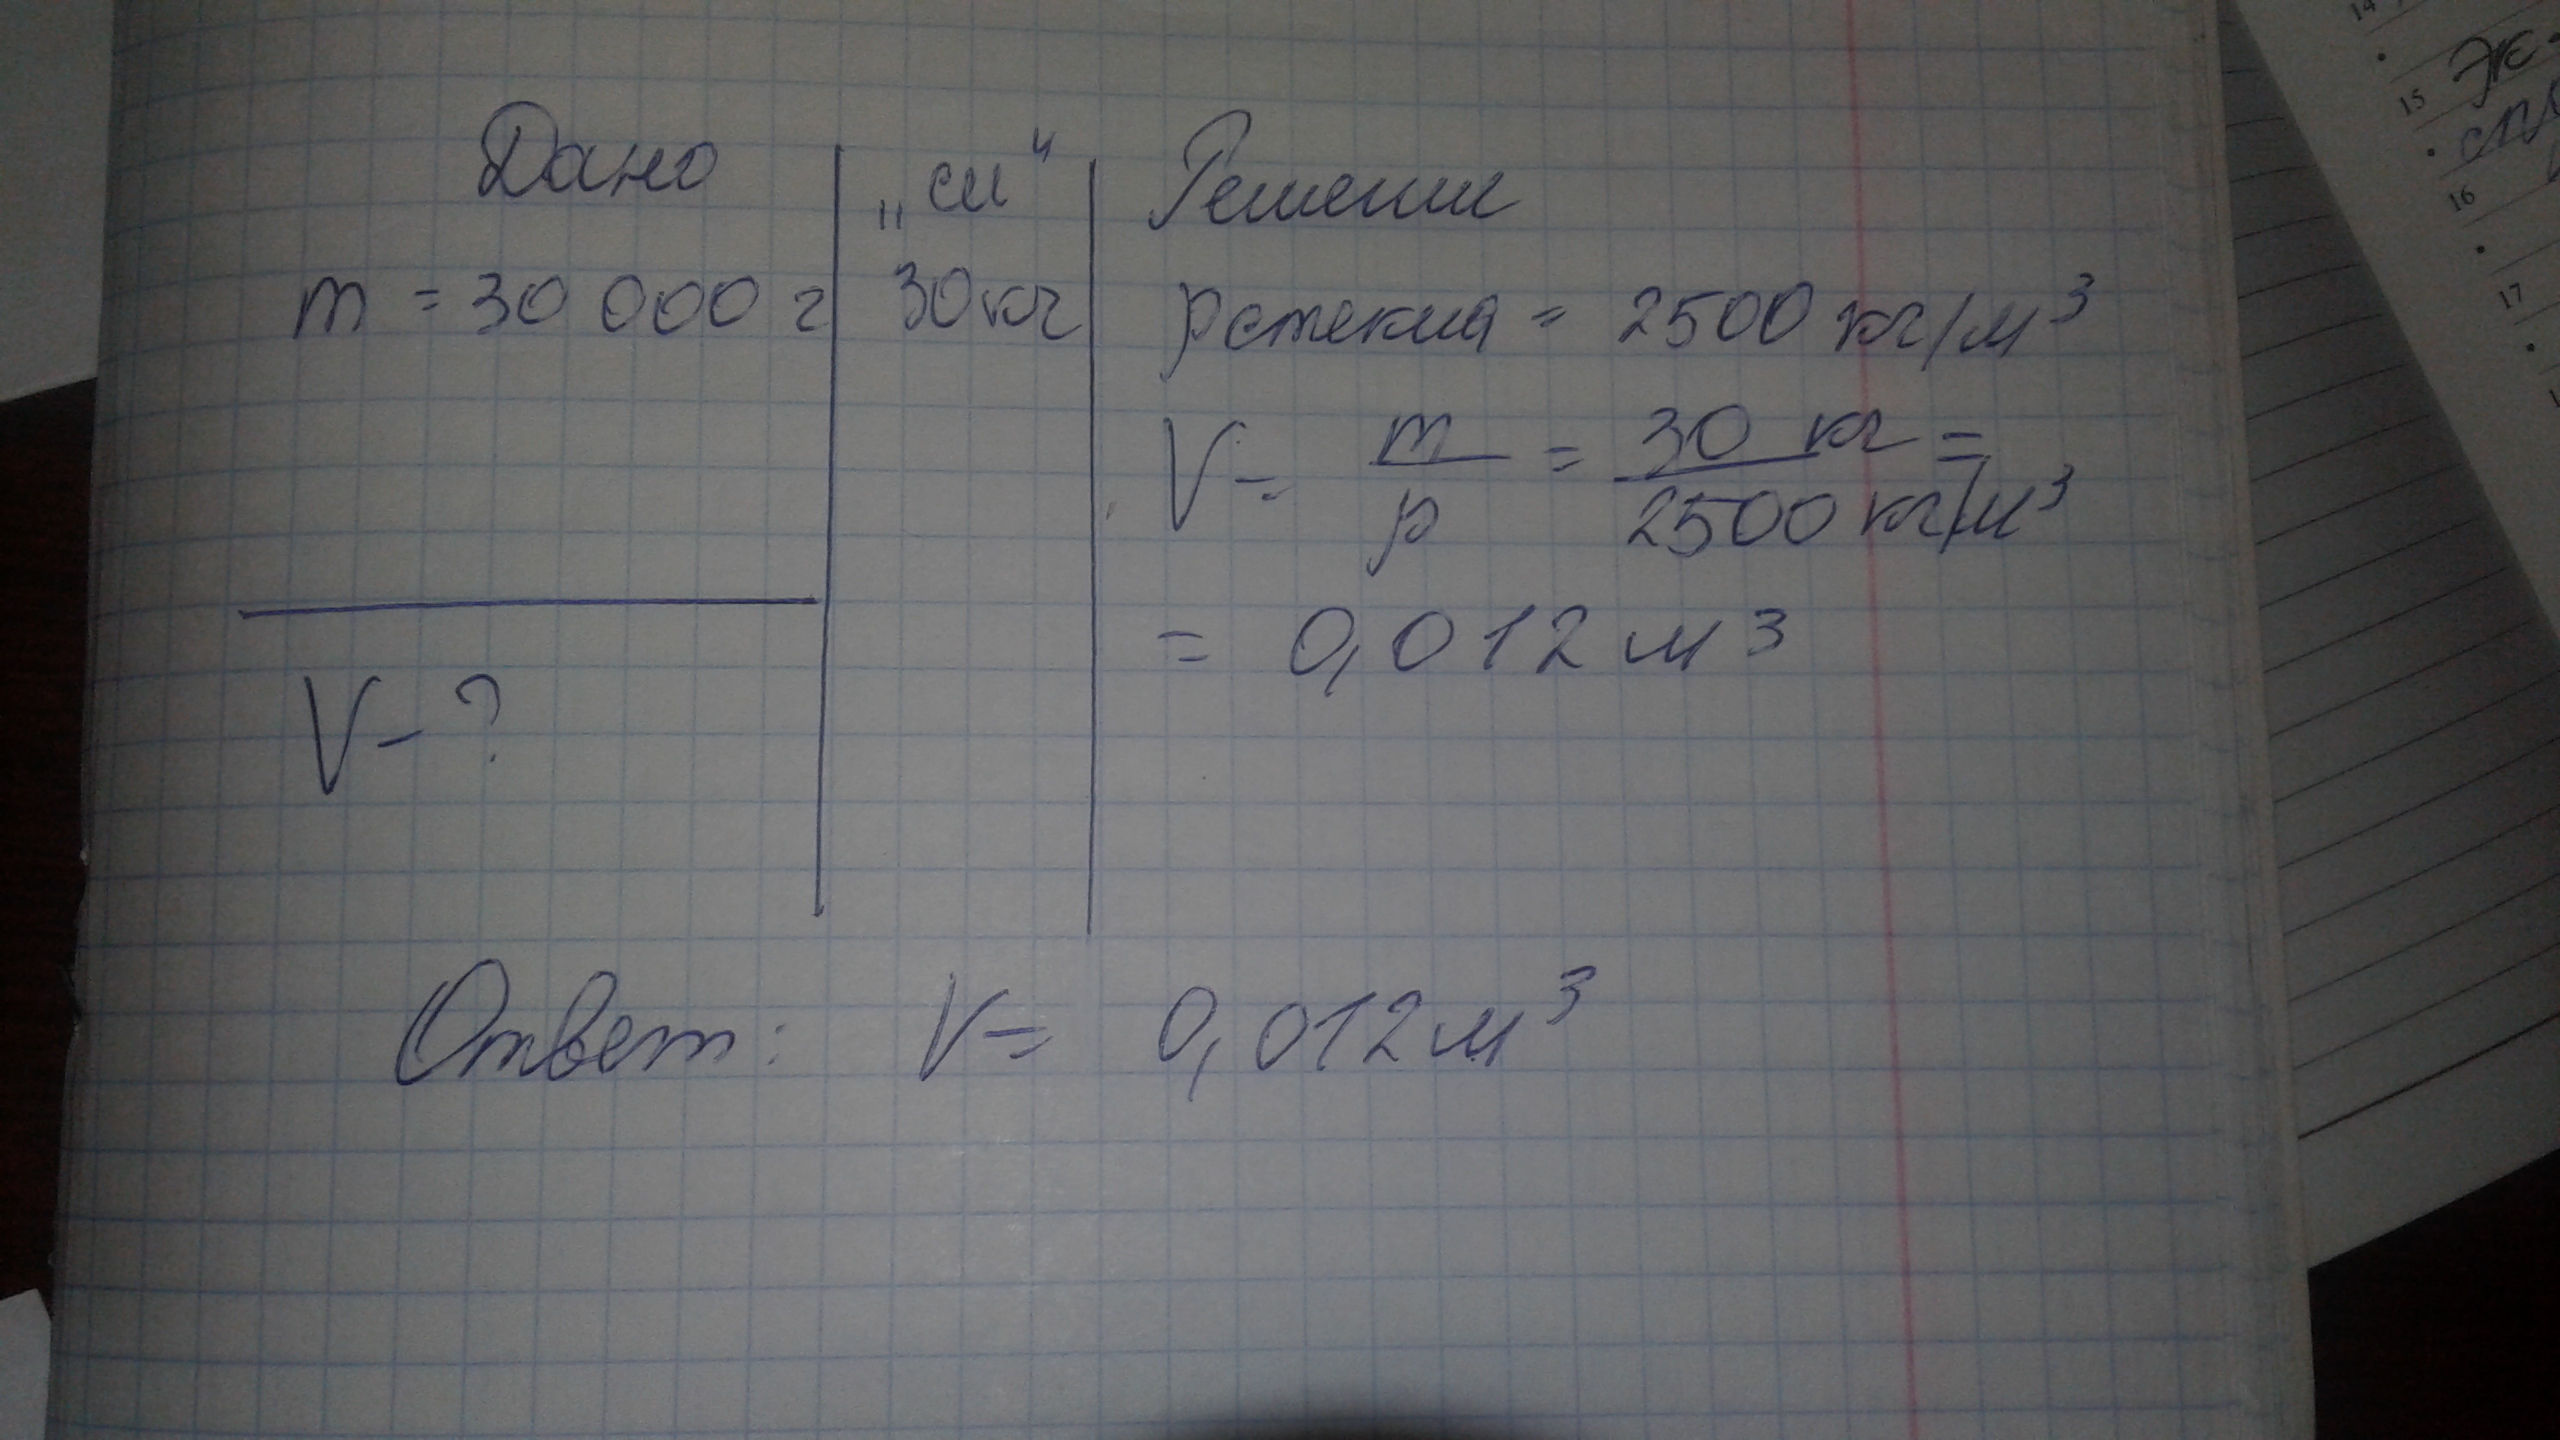 Дано
m = 30 000 г
V - ?
„си“
30 кг
Решение
ρ стекла = 2500 кг/м³
V = m/ρ = 30 кг / 2500 кг/м³ =
= 0,012 м³
Ответ: V = 0,012 м³
14
15
16
17